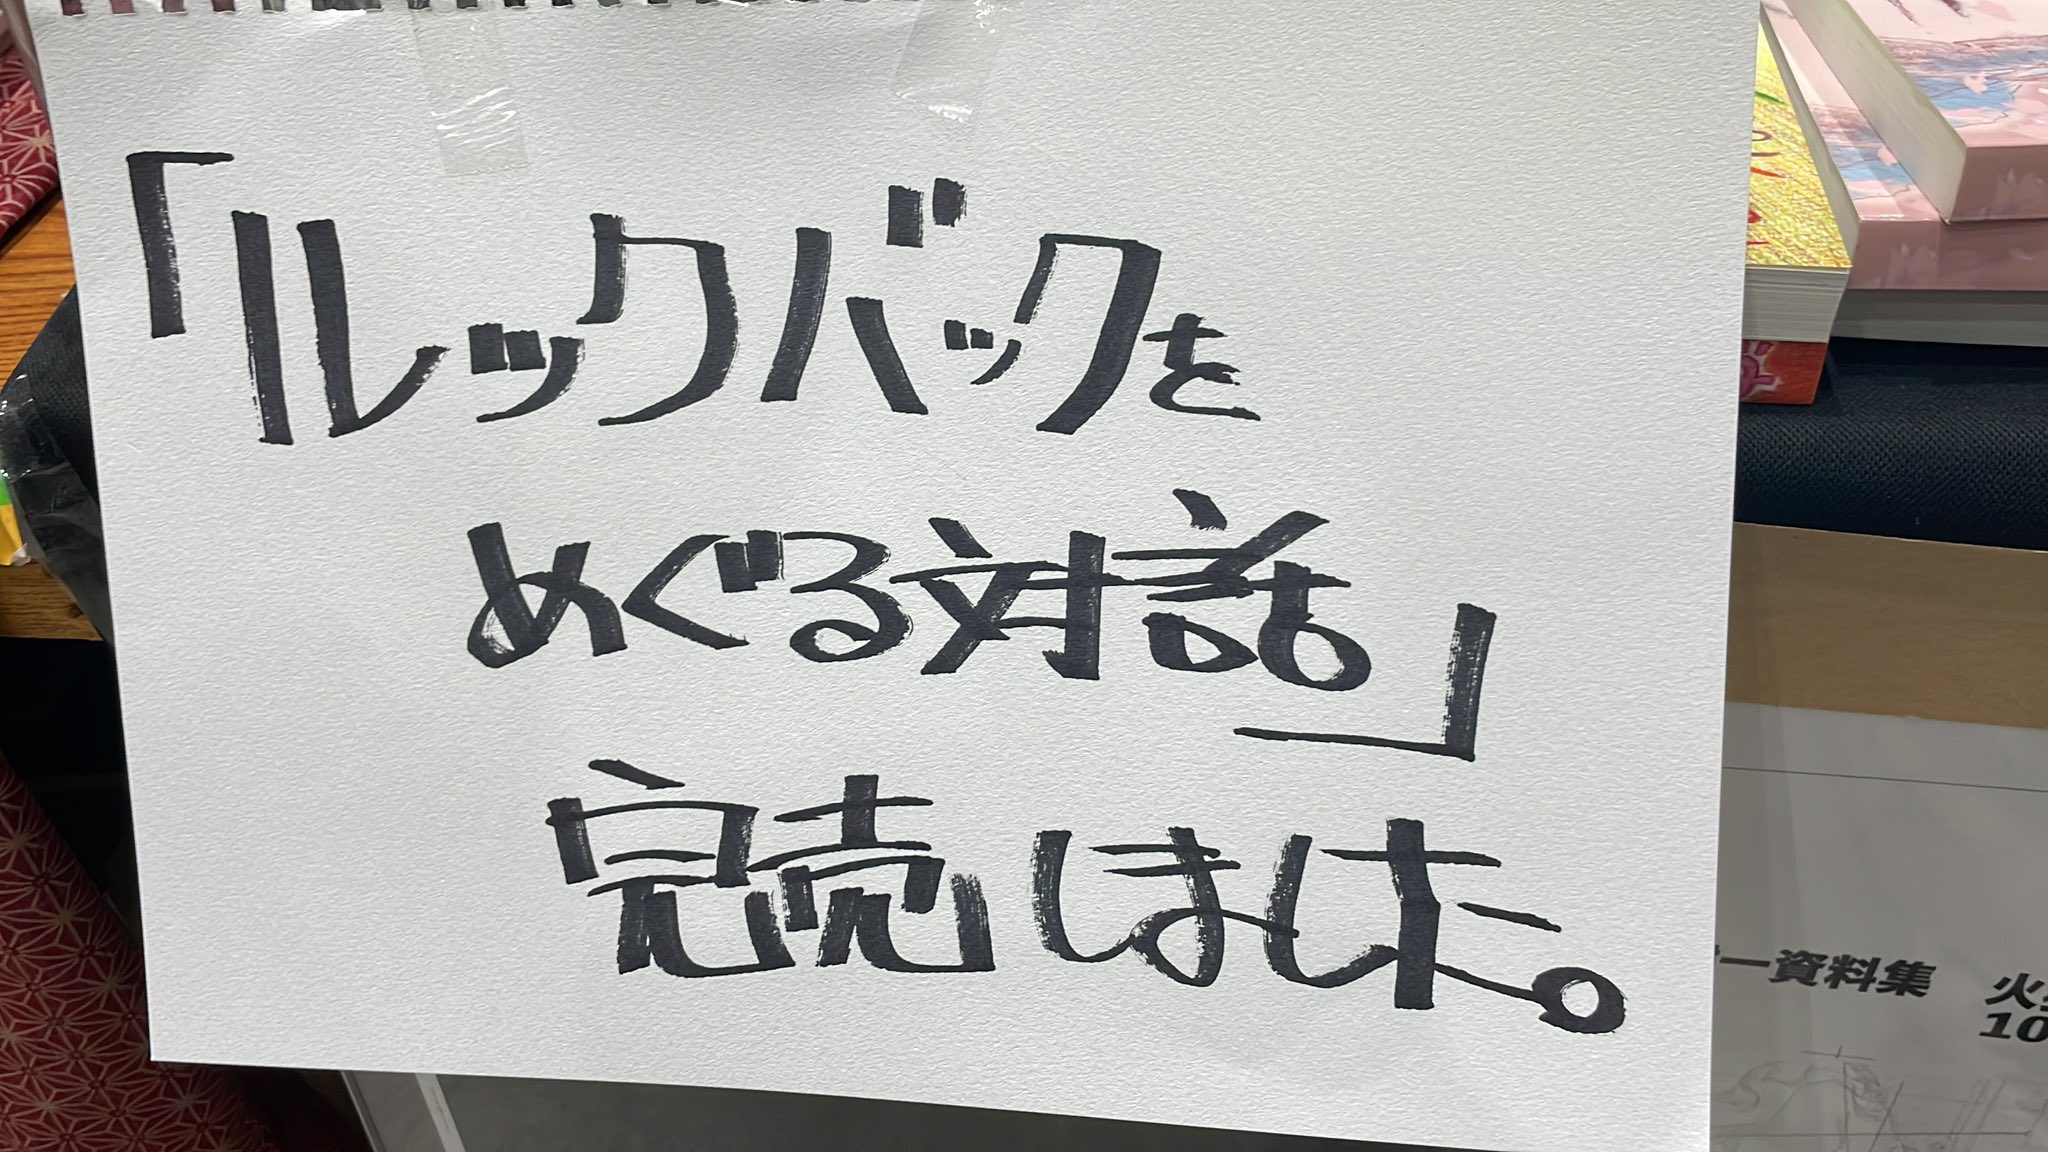 「ルックバックを
めぐる対話」
完売しました。
ー資料集 火
10